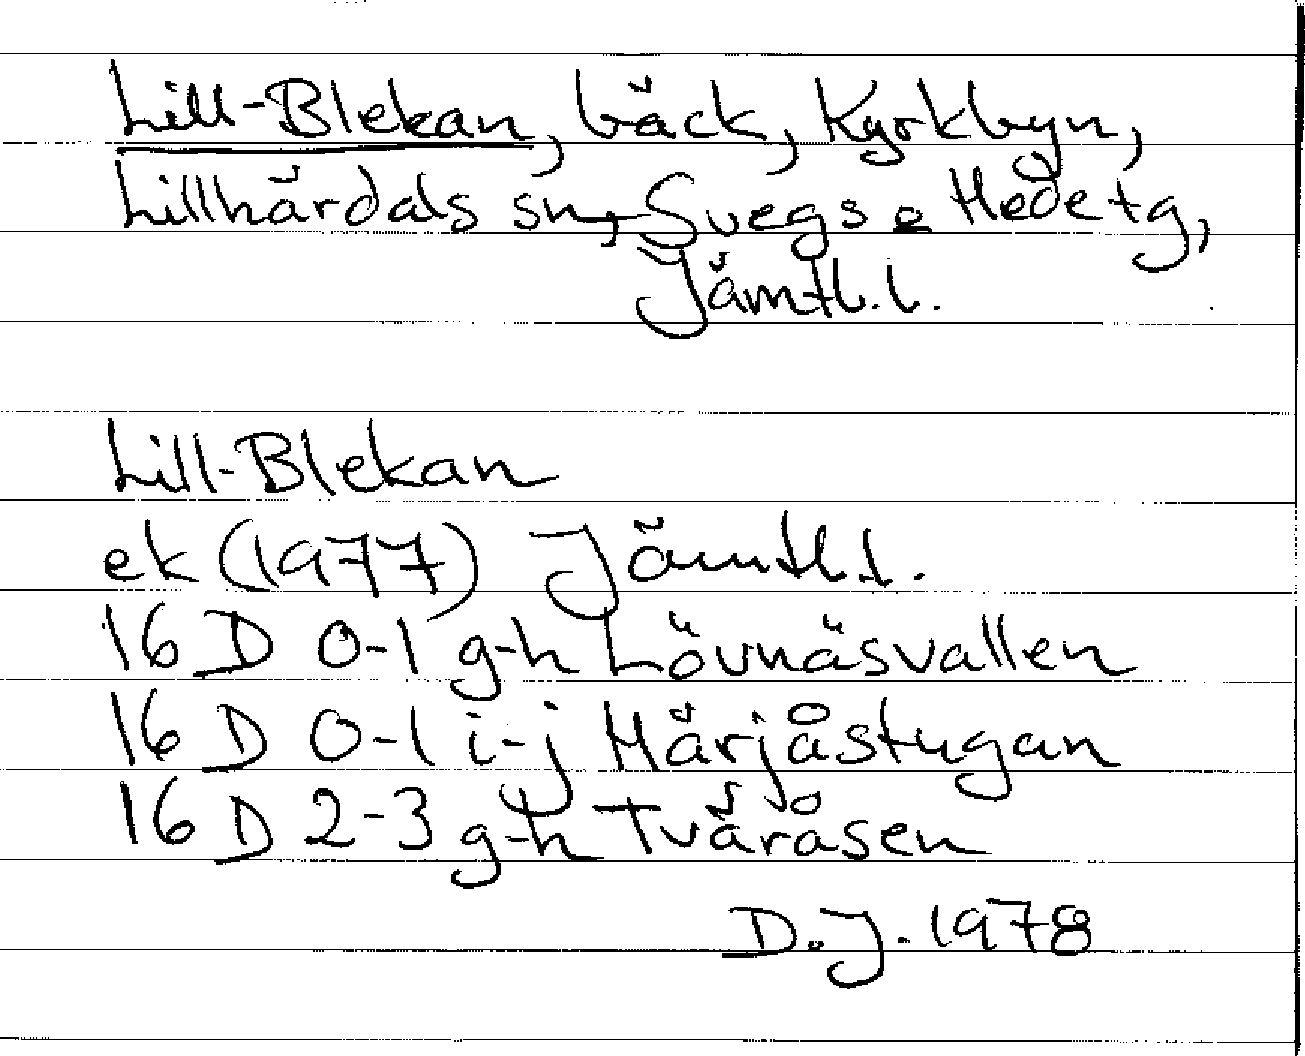 Lill-Blekan, bäck, Kyrkbyn,
Lillhärdals sn, Svegs o Hede tg,
Jämtl. l.
Lill-Blekan
ek (1977) Jämtl. l.
16 D 0-1 g-h Lövnäsvallen
16 D 0-1 i-j Härjåstugan
16 D 2-3 g-h Tväråsen
D.J. 1978